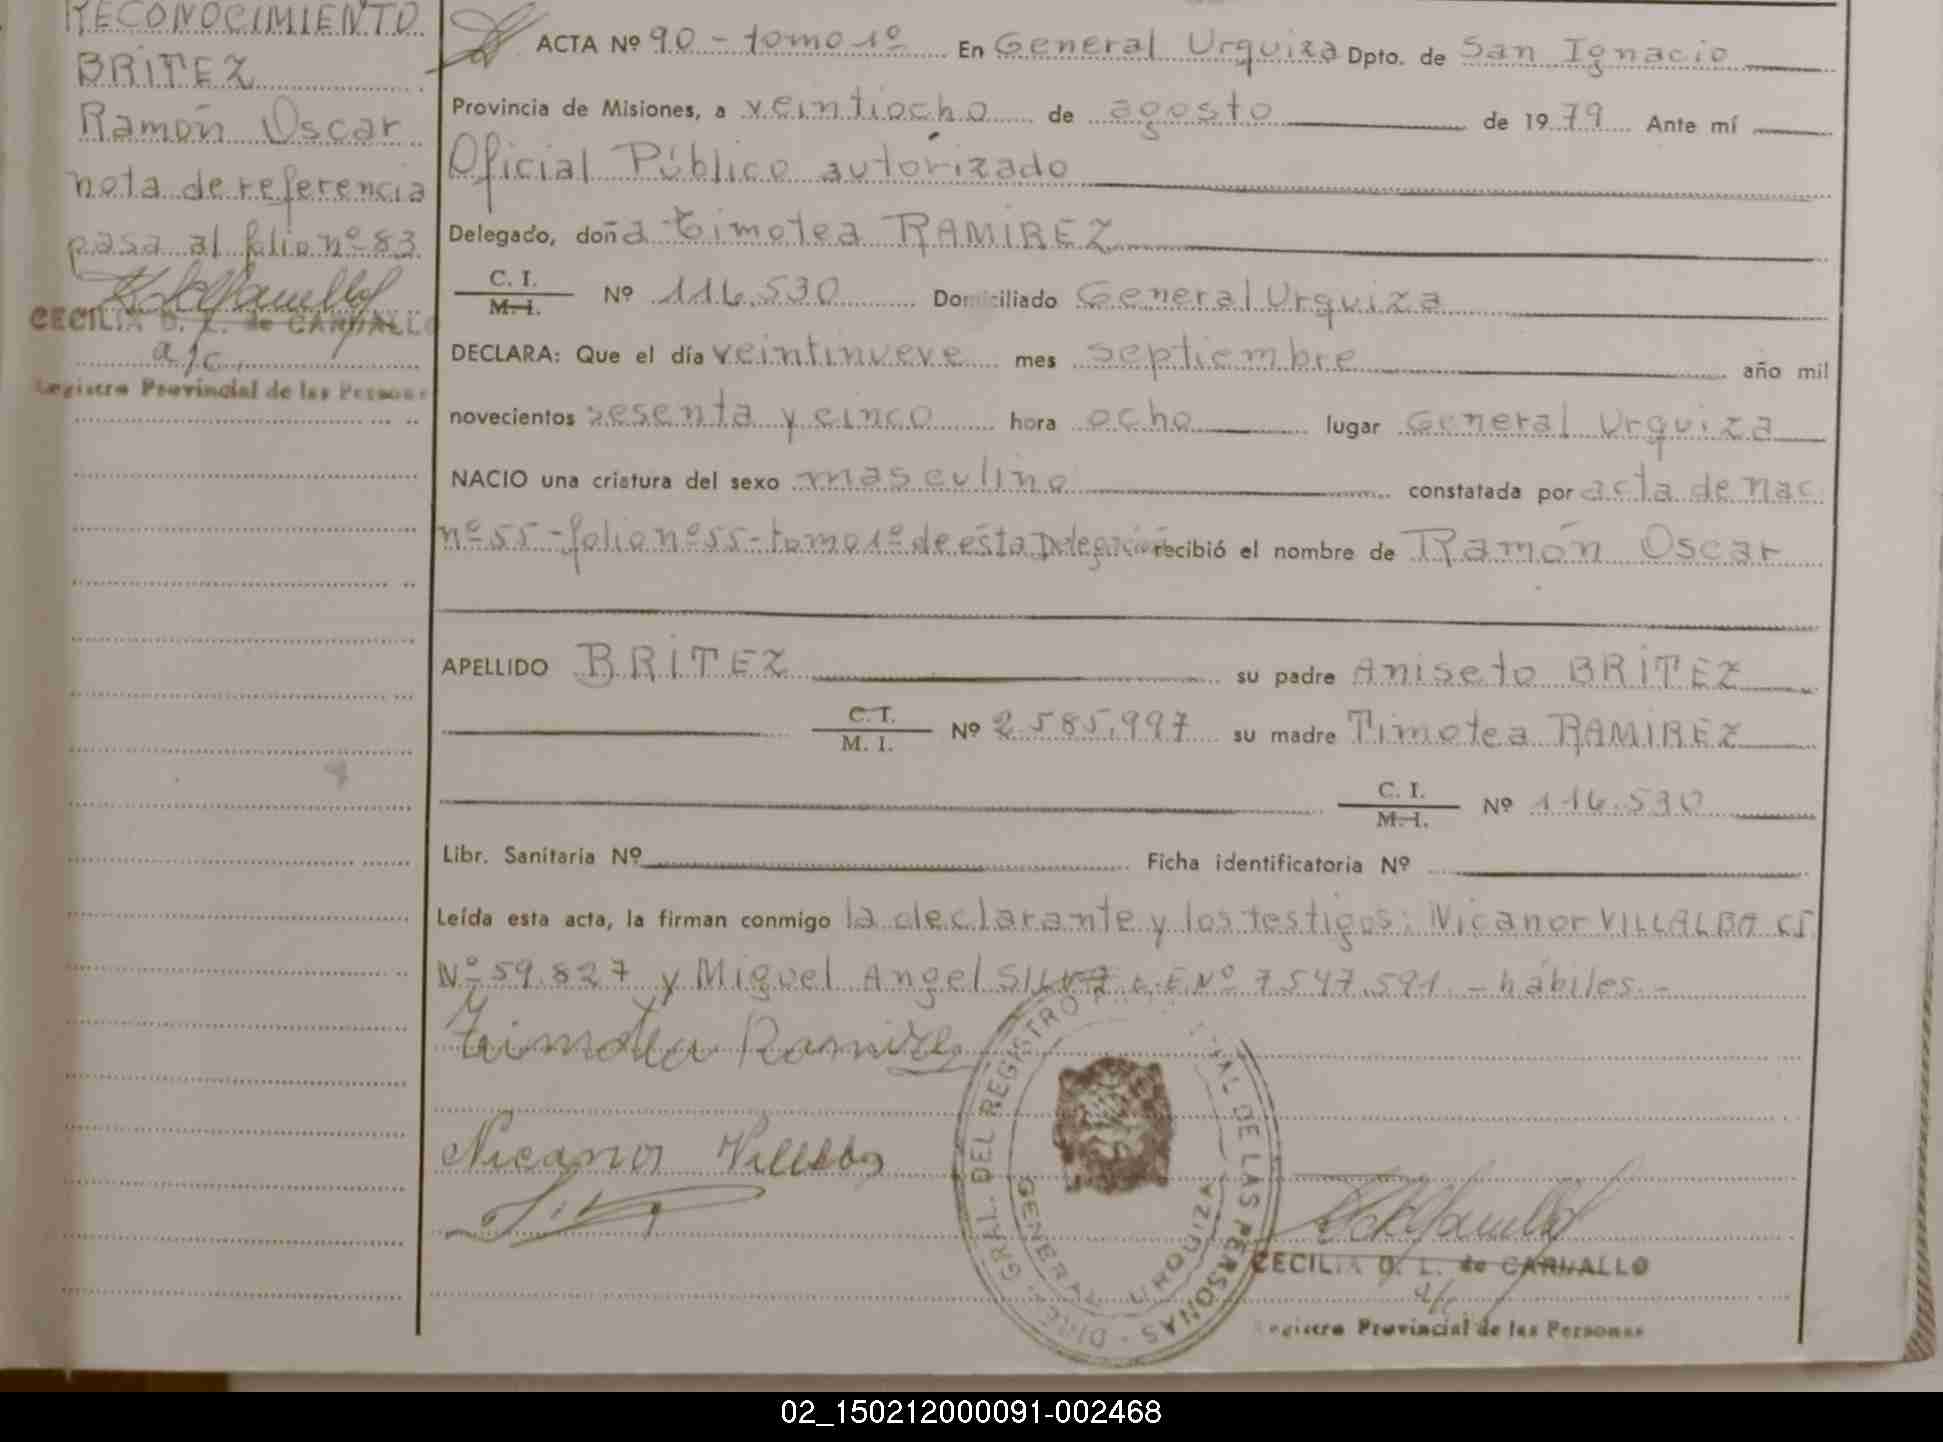 RECONOCIMIENTO
BRITEZ
Ramón Oscar
nota de referencia
pasa al folio nº 83
CECILIA D. L. de CARVALLO
a/c
Registro Provincial de las Personas
ACTA Nº 90 - tomo 1º En General Urquiza Dpto. de San Ignacio
Provincia de Misiones, a veintiocho de agosto de 1979 Ante mí
Oficial Público autorizado
Delegado, doña timotea RAMIREZ
C. I.
M. I.
Nº 116.530 Domiciliado General Urquiza
DECLARA: Que el día veintinueve mes septiembre año mil
novecientos sesenta y cinco hora ocho lugar General Urquiza
NACIO una criatura del sexo masculino constatada por acta de nac.
nº 55 - folio nº 55 - tomo 1º de esta Delegación recibió el nombre de Ramón Oscar
APELLIDO BRITEZ su padre Aniseto BRITEZ
C. I.
M. I.
Nº 2.585.997 su madre Timotea RAMIREZ
C. I.
M. I.
Nº 116.530
Libr. Sanitaria Nº Ficha identificatoria Nº
Leída esta acta, la firman conmigo la declarante y los testigos: Nicanor VILLALBA CI
Nº 59.827 y Miguel Angel SILVA L.E Nº 7.547.591 - hábiles. -
timotea Ramirez
Nicanor Villalba
DIREC. GRAL. DEL REGISTRO AL DE LAS PERSONAS
GENERAL URQUIZA
CECILIA D. L. de CARVALLO
a/c
Registro Provincial de las Personas
02_150212000091-002468